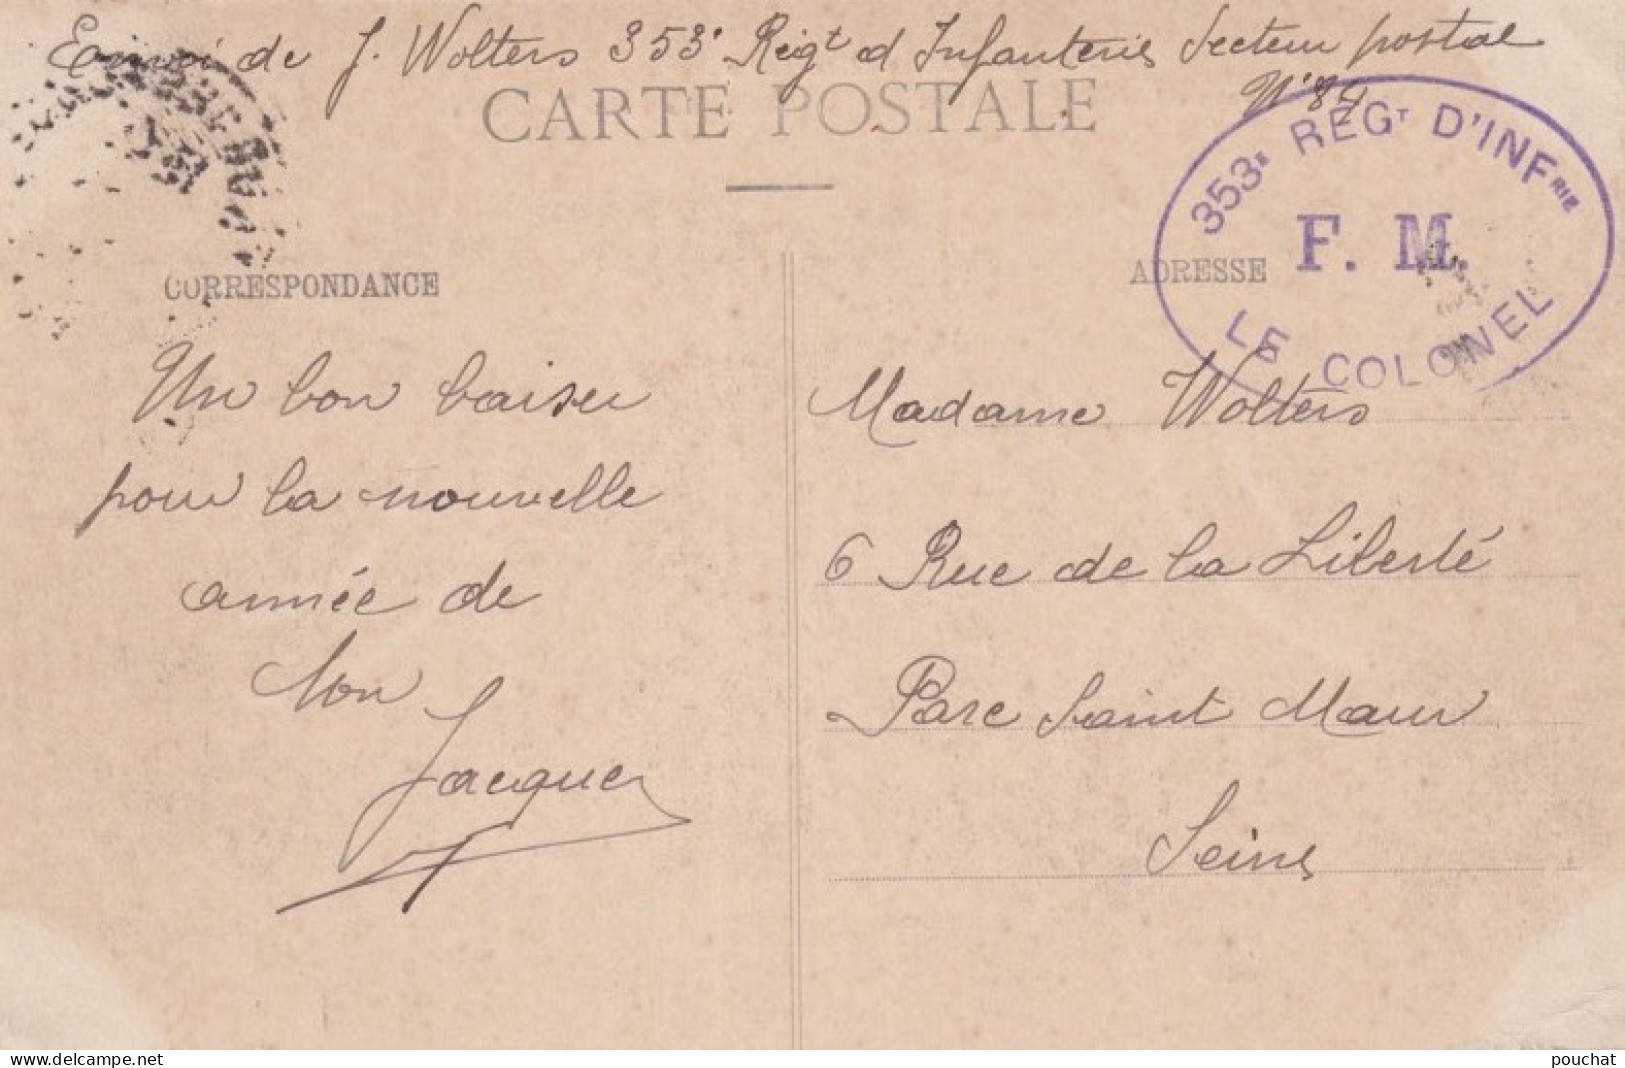 Envoi de J. Wolters 353e Regt d Infanterie Secteur postal
N° 84
CARTE POSTALE
353e RÉGT D'INFRIE
F. M.
LE COLONEL
CORRESPONDANCE
ADRESSE
Un bon baiser
pour la nouvelle
année de
ton
Jacques
Madame Wolters
6 Rue de la Liberté
Parc Saint Maur
Seine
www.delcampe.net
pouchat